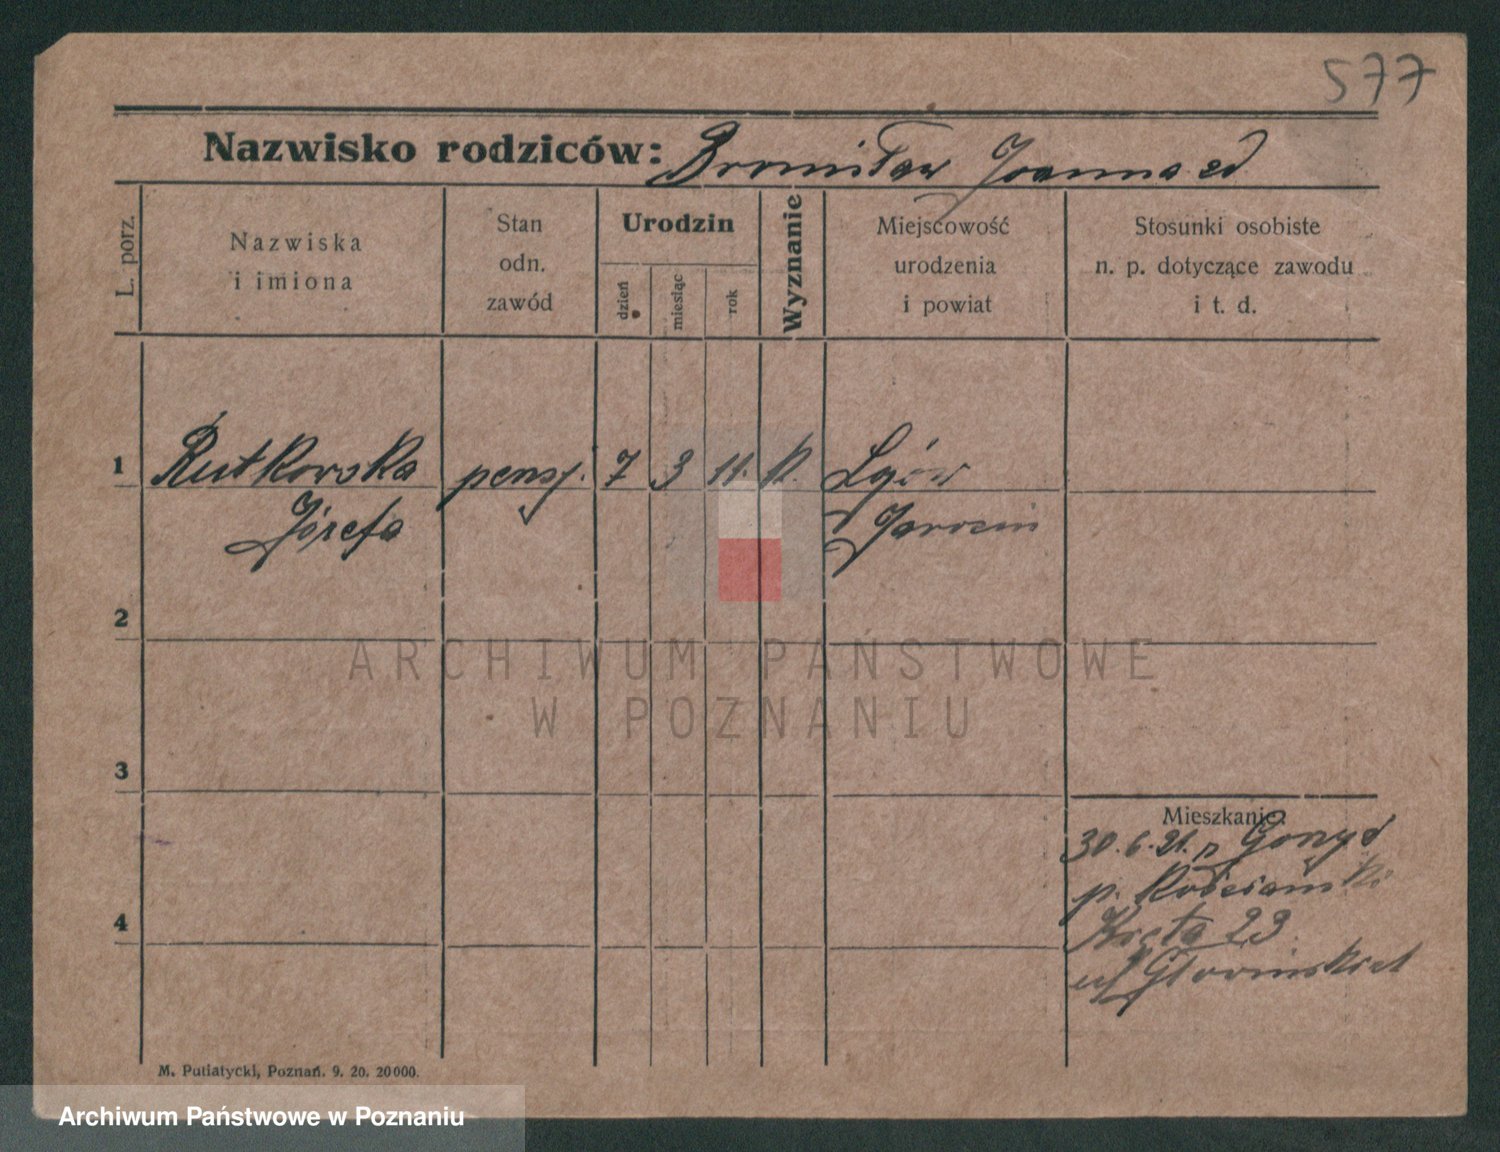 577
Nazwisko rodziców: Bronisław Joanna
L. porz.
Nazwiska
i imiona
Stan
odn.
zawód
Urodzin
dzień
miesiąc
rok
Wyznanie
Miejscowość
urodzenia
i powiat
Stosunki osobiste
n. p. dotyczące zawodu
i t. d.
1 Rutkowska pensj. 7 3 11. k. Lgów
Józefa Jarocin
2
3
4
Mieszkanie:
30.6.21. p
p. Kościański
Kręta 23
M. Putiatycki, Poznań. 9. 20. 20000.
ARCHIWUM PAŃSTWOWE
W POZNANIU
Archiwum Państwowe w Poznaniu